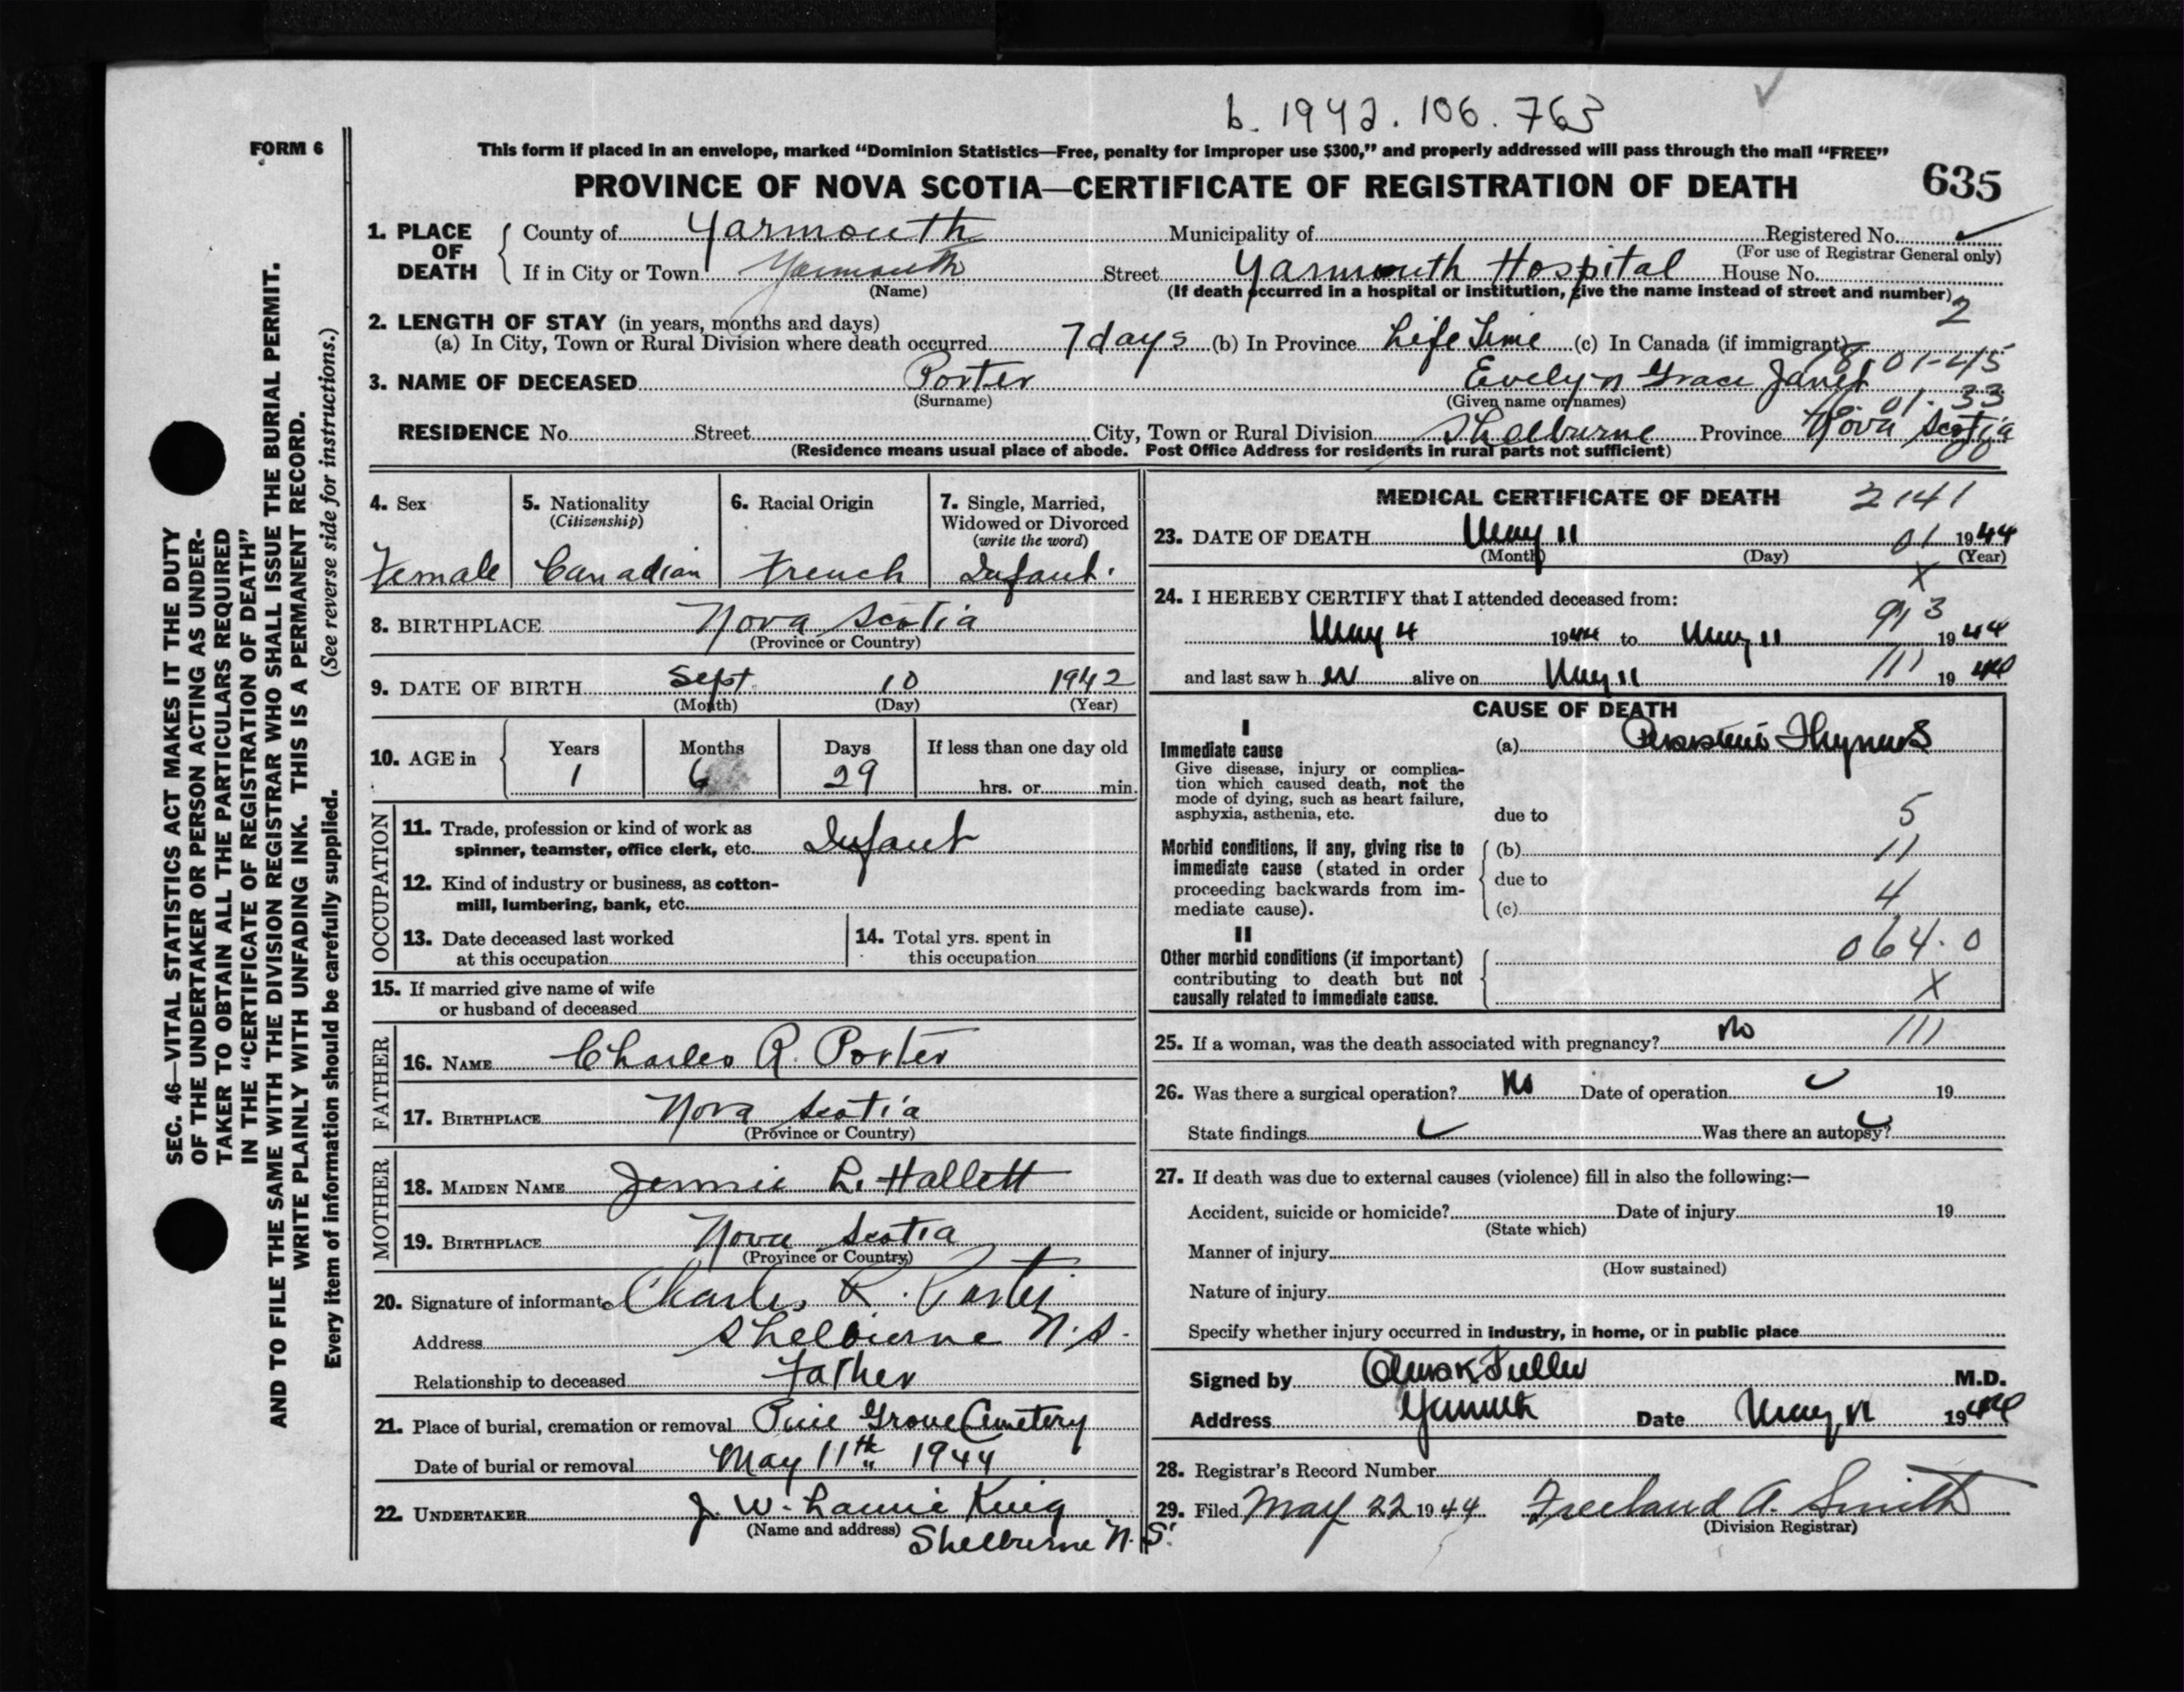 b. 1942. 106. 763
FORM 6
This form if placed in an envelope, marked “Dominion Statistics—Free, penalty for improper use $300,” and properly addressed will pass through the mail “FREE”
PROVINCE OF NOVA SCOTIA—CERTIFICATE OF REGISTRATION OF DEATH 635
SEC. 46—VITAL STATISTICS ACT MAKES IT THE DUTY
OF THE UNDERTAKER OR PERSON ACTING AS UNDER-
TAKER TO OBTAIN ALL THE PARTICULARS REQUIRED
IN THE “CERTIFICATE OF REGISTRATION OF DEATH”
AND TO FILE THE SAME WITH THE DIVISION REGISTRAR WHO SHALL ISSUE THE BURIAL PERMIT.
WRITE PLAINLY WITH UNFADING INK. THIS IS A PERMANENT RECORD.
Every item of information should be carefully supplied. (See reverse side for instructions.)
1. PLACE OF DEATH
County of Yarmouth Municipality of Registered No.
(For use of Registrar General only)
If in City or Town Yarmouth Street Yarmouth Hospital House No.
(Name) (If death occurred in a hospital or institution, give the name instead of street and number)
2
2. LENGTH OF STAY (in years, months and days)
(a) In City, Town or Rural Division where death occurred 7 days (b) In Province Life Time (c) In Canada (if immigrant)
01-45
3. NAME OF DECEASED Porter Evelyn Grace Janet
(Surname) (Given name or names)
01.33
RESIDENCE No. Street City, Town or Rural Division Shelburne Province Nova Scotia
(Residence means usual place of abode. Post Office Address for residents in rural parts not sufficient)
4. Sex
Female
5. Nationality
(Citizenship)
Canadian
6. Racial Origin
French
7. Single, Married,
Widowed or Divorced
(write the word)
Infant.
8. BIRTHPLACE Nova Scotia
(Province or Country)
9. DATE OF BIRTH Sept. 10 1942
(Month) (Day) (Year)
10. AGE in Years Months Days If less than one day old
1 6 29 hrs. or min.
OCCUPATION
11. Trade, profession or kind of work as
spinner, teamster, office clerk, etc. Infant
12. Kind of industry or business, as cotton-
mill, lumbering, bank, etc.
13. Date deceased last worked
at this occupation
14. Total yrs. spent in
this occupation
15. If married give name of wife
or husband of deceased
FATHER
16. NAME Charles R. Porter
17. BIRTHPLACE Nova Scotia
(Province or Country)
MOTHER
18. MAIDEN NAME Jennie L. Hallett
19. BIRTHPLACE Nova Scotia
(Province or Country)
20. Signature of informant Charles R. Porter
Address Shelburne N.S.
Relationship to deceased Father
21. Place of burial, cremation or removal Pine Grove Cemetery
Date of burial or removal May 11th 1944
22. UNDERTAKER J. W. Laurie King
(Name and address) Shelburne N.S.
MEDICAL CERTIFICATE OF DEATH 2141
23. DATE OF DEATH May 11 01 1944
(Month) (Day) (Year)
X
24. I HEREBY CERTIFY that I attended deceased from:
913
May 4 1944 to May 11 1944
and last saw h er alive on May 11 111 19 44
CAUSE OF DEATH
I
Immediate cause
Give disease, injury or complica-
tion which caused death, not the
mode of dying, such as heart failure,
asphyxia, asthenia, etc.
(a) Thymus
due to 5
Morbid conditions, if any, giving rise to
immediate cause (stated in order
proceeding backwards from im-
mediate cause).
(b) 11
due to
(c) 4
II
Other morbid conditions (if important)
contributing to death but not
causally related to immediate cause.
064.0
X
25. If a woman, was the death associated with pregnancy? no 111
26. Was there a surgical operation? No Date of operation 19
State findings Was there an autopsy?
27. If death was due to external causes (violence) fill in also the following:—
Accident, suicide or homicide? Date of injury 19
(State which)
Manner of injury
(How sustained)
Nature of injury
Specify whether injury occurred in industry, in home, or in public place
Signed by Fuller M.D.
Address Yarmouth Date May 11 1944
28. Registrar's Record Number
29. Filed May 22 1944 Freeland A. Smith
(Division Registrar)